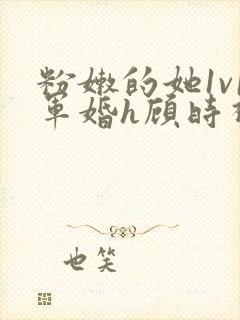 粉嫩的她1v1
军婚h顾时
也笑